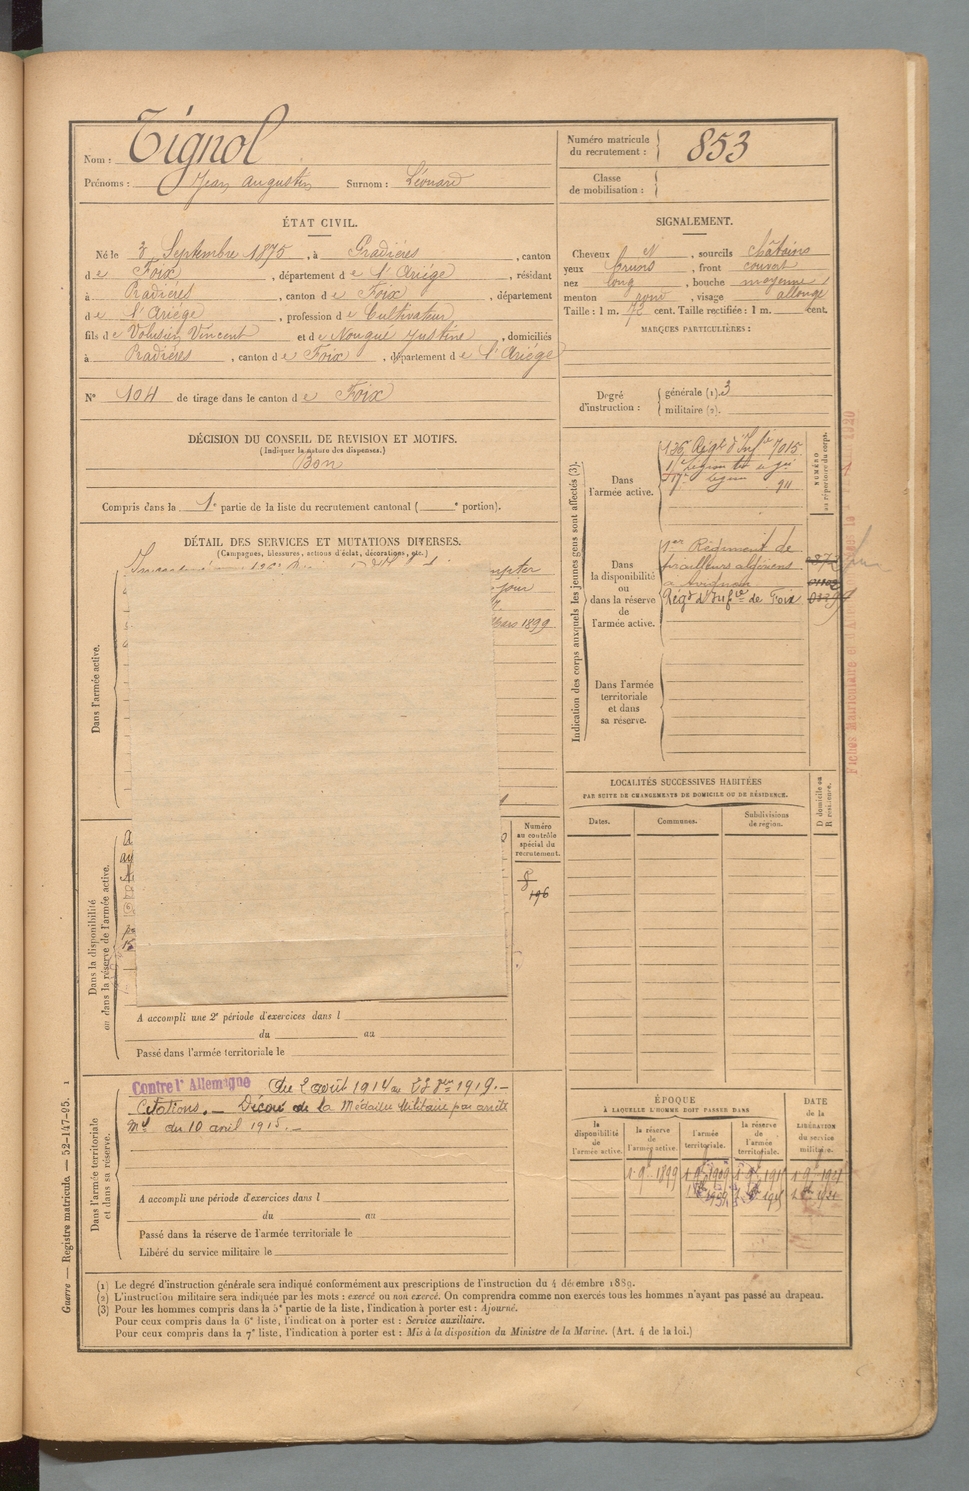 Nom : Tignol
Prénoms : Jean Augustin Surnom : Léonard
Numéro matricule du recrutement : 853
Classe de mobilisation :
ÉTAT CIVIL.
Né le 3 Septembre 1875, à Pradières, canton
de Foix, département de l'Ariège, résidant
à Pradières, canton de Foix, département
de l'Ariège, profession de Cultivateur
fils de Volusien Vincent et de Nougué Justine, domiciliés
à Pradières, canton de Foix, département de l'Ariège
N° 104 de tirage dans le canton de Foix
SIGNALEMENT.
Cheveux N, sourcils châtains
yeux bruns, front couvert
nez long, bouche moyenne
menton rond, visage allongé
Taille : 1 m. 72 cent. Taille rectifiée : 1 m. cent.
MARQUES PARTICULIÈRES :
Degré d'instruction : générale (1). 3
militaire (2).
DÉCISION DU CONSEIL DE REVISION ET MOTIFS.
(Indiquer la nature des dispenses.)
Bon
Compris dans la 1e partie de la liste du recrutement cantonal ( e portion).
DÉTAIL DES SERVICES ET MUTATIONS DIVERSES.
(Campagnes, blessures, actions d'éclat, décorations, etc.)
compter
jour
Mars 1899
Dans l'armée active.
Dans la disponibilité ou dans la réserve de l'armée active.
Numéro au contrôle spécial du recrutement.
8
196
A accompli une 2e période d'exercices dans l
du au
Passé dans l'armée territoriale le
Contre l'Allemagne Du 2 août 1914 au
1919.
Citations. — Décoré de la Médaille Militaire par arrêté
Mel du 10 avril 1915.
Dans l'armée territoriale et dans sa réserve.
A accompli une période d'exercices dans l
du au
Passé dans la réserve de l'armée territoriale le
Libéré du service militaire le
Indication des corps auxquels les jeunes gens sont affectés (3).
NUMÉRO au répertoire du corps.
Dans l'armée active.
126e Régt d'Infie 7015
17e Légion
17e légion 911
Dans la disponibilité ou dans la réserve de l'armée active.
1er Régiment de
tirailleurs algériens
à Avignon
Régt d'Infie de Foix
Dans l'armée territoriale et dans sa réserve.
LOCALITÉS SUCCESSIVES HABITÉES
PAR SUITE DE CHANGEMENTS DE DOMICILE OU DE RÉSIDENCE.
Dates. Communes. Subdivisions de région. D domicile ou R résidence.
ÉPOQUE
À LAQUELLE L'HOMME DOIT PASSER DANS
la disponibilité de l'armée active.
la réserve de l'armée active.
l'armée territoriale.
la réserve de l'armée territoriale.
DATE de la LIBÉRATION du service militaire.
1 9bre 1899
Guerre — Registre matricule. — 52-147-95. 1
(1) Le degré d'instruction générale sera indiqué conformément aux prescriptions de l'instruction du 4 décembre 1889.
(2) L'instruction militaire sera indiquée par les mots : exercé ou non exercé. On comprendra comme non exercés tous les hommes n'ayant pas passé au drapeau.
(3) Pour les hommes compris dans la 5e partie de la liste, l'indication à porter est : Ajourné.
Pour ceux compris dans la 6e liste, l'indication à porter est : Service auxiliaire.
Pour ceux compris dans la 7e liste, l'indication à porter est : Mis à la disposition du Ministre de la Marine. (Art. 4 de la loi.)